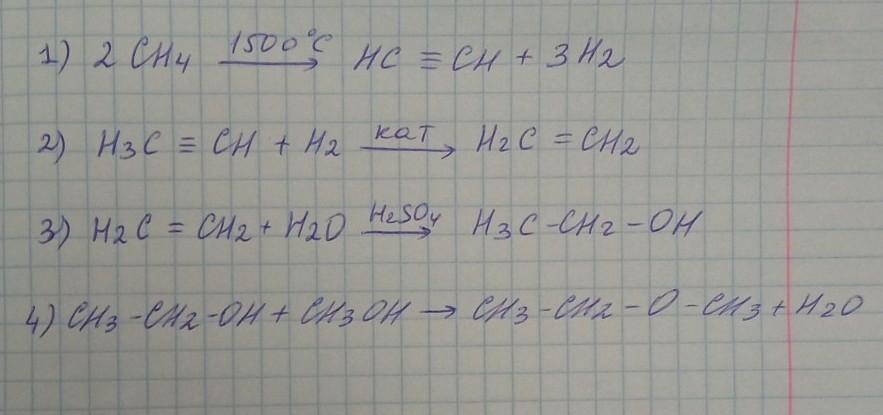 1) 2 CH4 1500°C → HC ≡ CH + 3H2
2) H3C ≡ CH + H2 кат → H2C = CH2
3) H2C = CH2 + H2O H2SO4 → H3C-CH2-OH
4) CH3-CH2-OH + CH3OH → CH3-CH2-O-CH3 + H2O